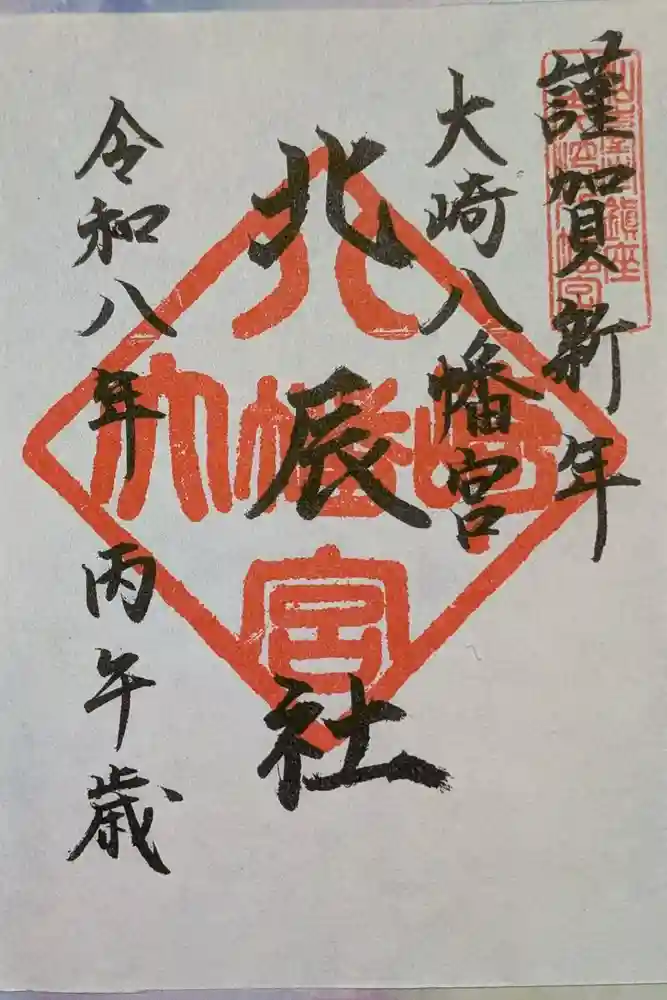 謹賀新年
大崎八幡宮
北辰社
令和八年 丙午歳
八
大幡崎
宮